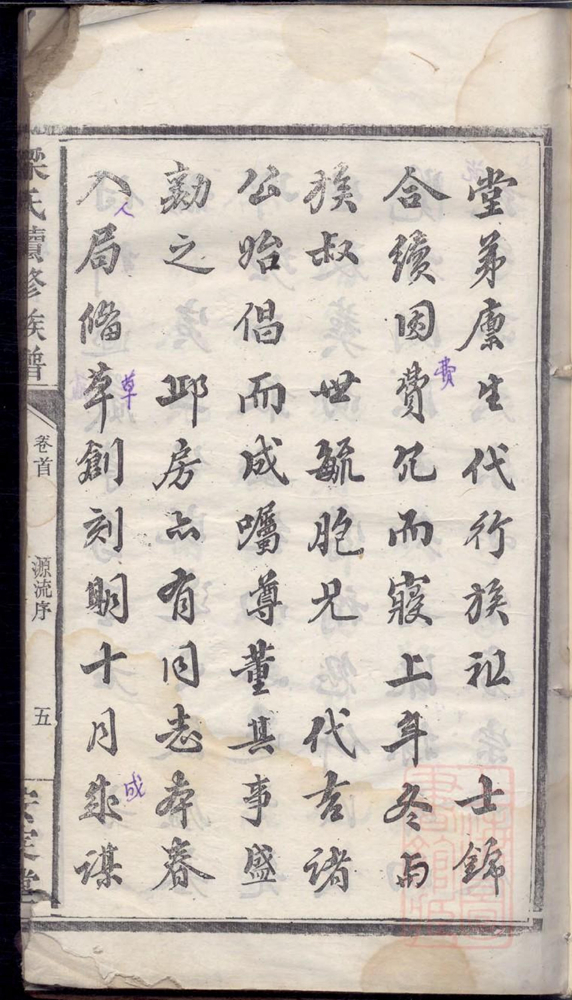 堂弟廪生代行族祖　士錦
合續因費亢而寢上年冬與
族叔　世毓胞兄　代吉諸
公始倡而成囑尊董其事盛
勷之　邱房亦有同志本春
入局修草創刻期十月成謀
人
費
草
成
梁氏續修族譜
卷首
源流序
五
安定堂